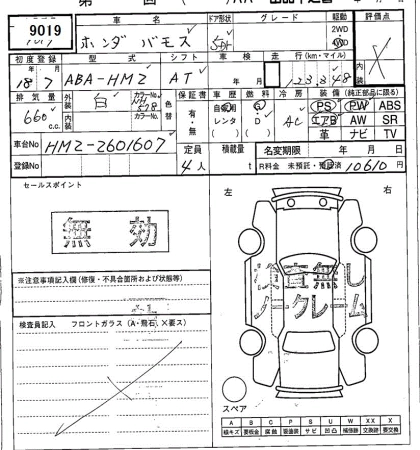 9019
車名 ドア形状 グレード 駆動 評価点
ホンダ バモス 5DH 2WD
4WD
初度登録 型式 シフト 車検 走行(km・マイル) 内装
18年7月 ABA-HM2 AT 年 月 123348
排気量 外装 カラーNo. 色替 保証書 車歴 燃料 冷房 装備(純正部品に限る)
660 c.c. 白 NH 578 有・無 自家用 G AC PS PW ABS
内装 カラーNo. レンタ D エアB AW SR
( ) ( ) 革 ナビ TV
車台No HM2-2601607 定員 積載量 名変期限 年 月 日
登録No 4人 t R料金 未預託・預託済 10610円
セールスポイント
無効
左 右
検査無し
ノークレーム
※注意事項記入欄(修復・不具合箇所および状態等)
検査員記入 フロントガラス(A・飛石 ×要ス)
スペア
A B C P S U W XX X
線キズ 要板金 腐蝕 要塗装 サビ 凹凸 補修跡 交換跡 要交換